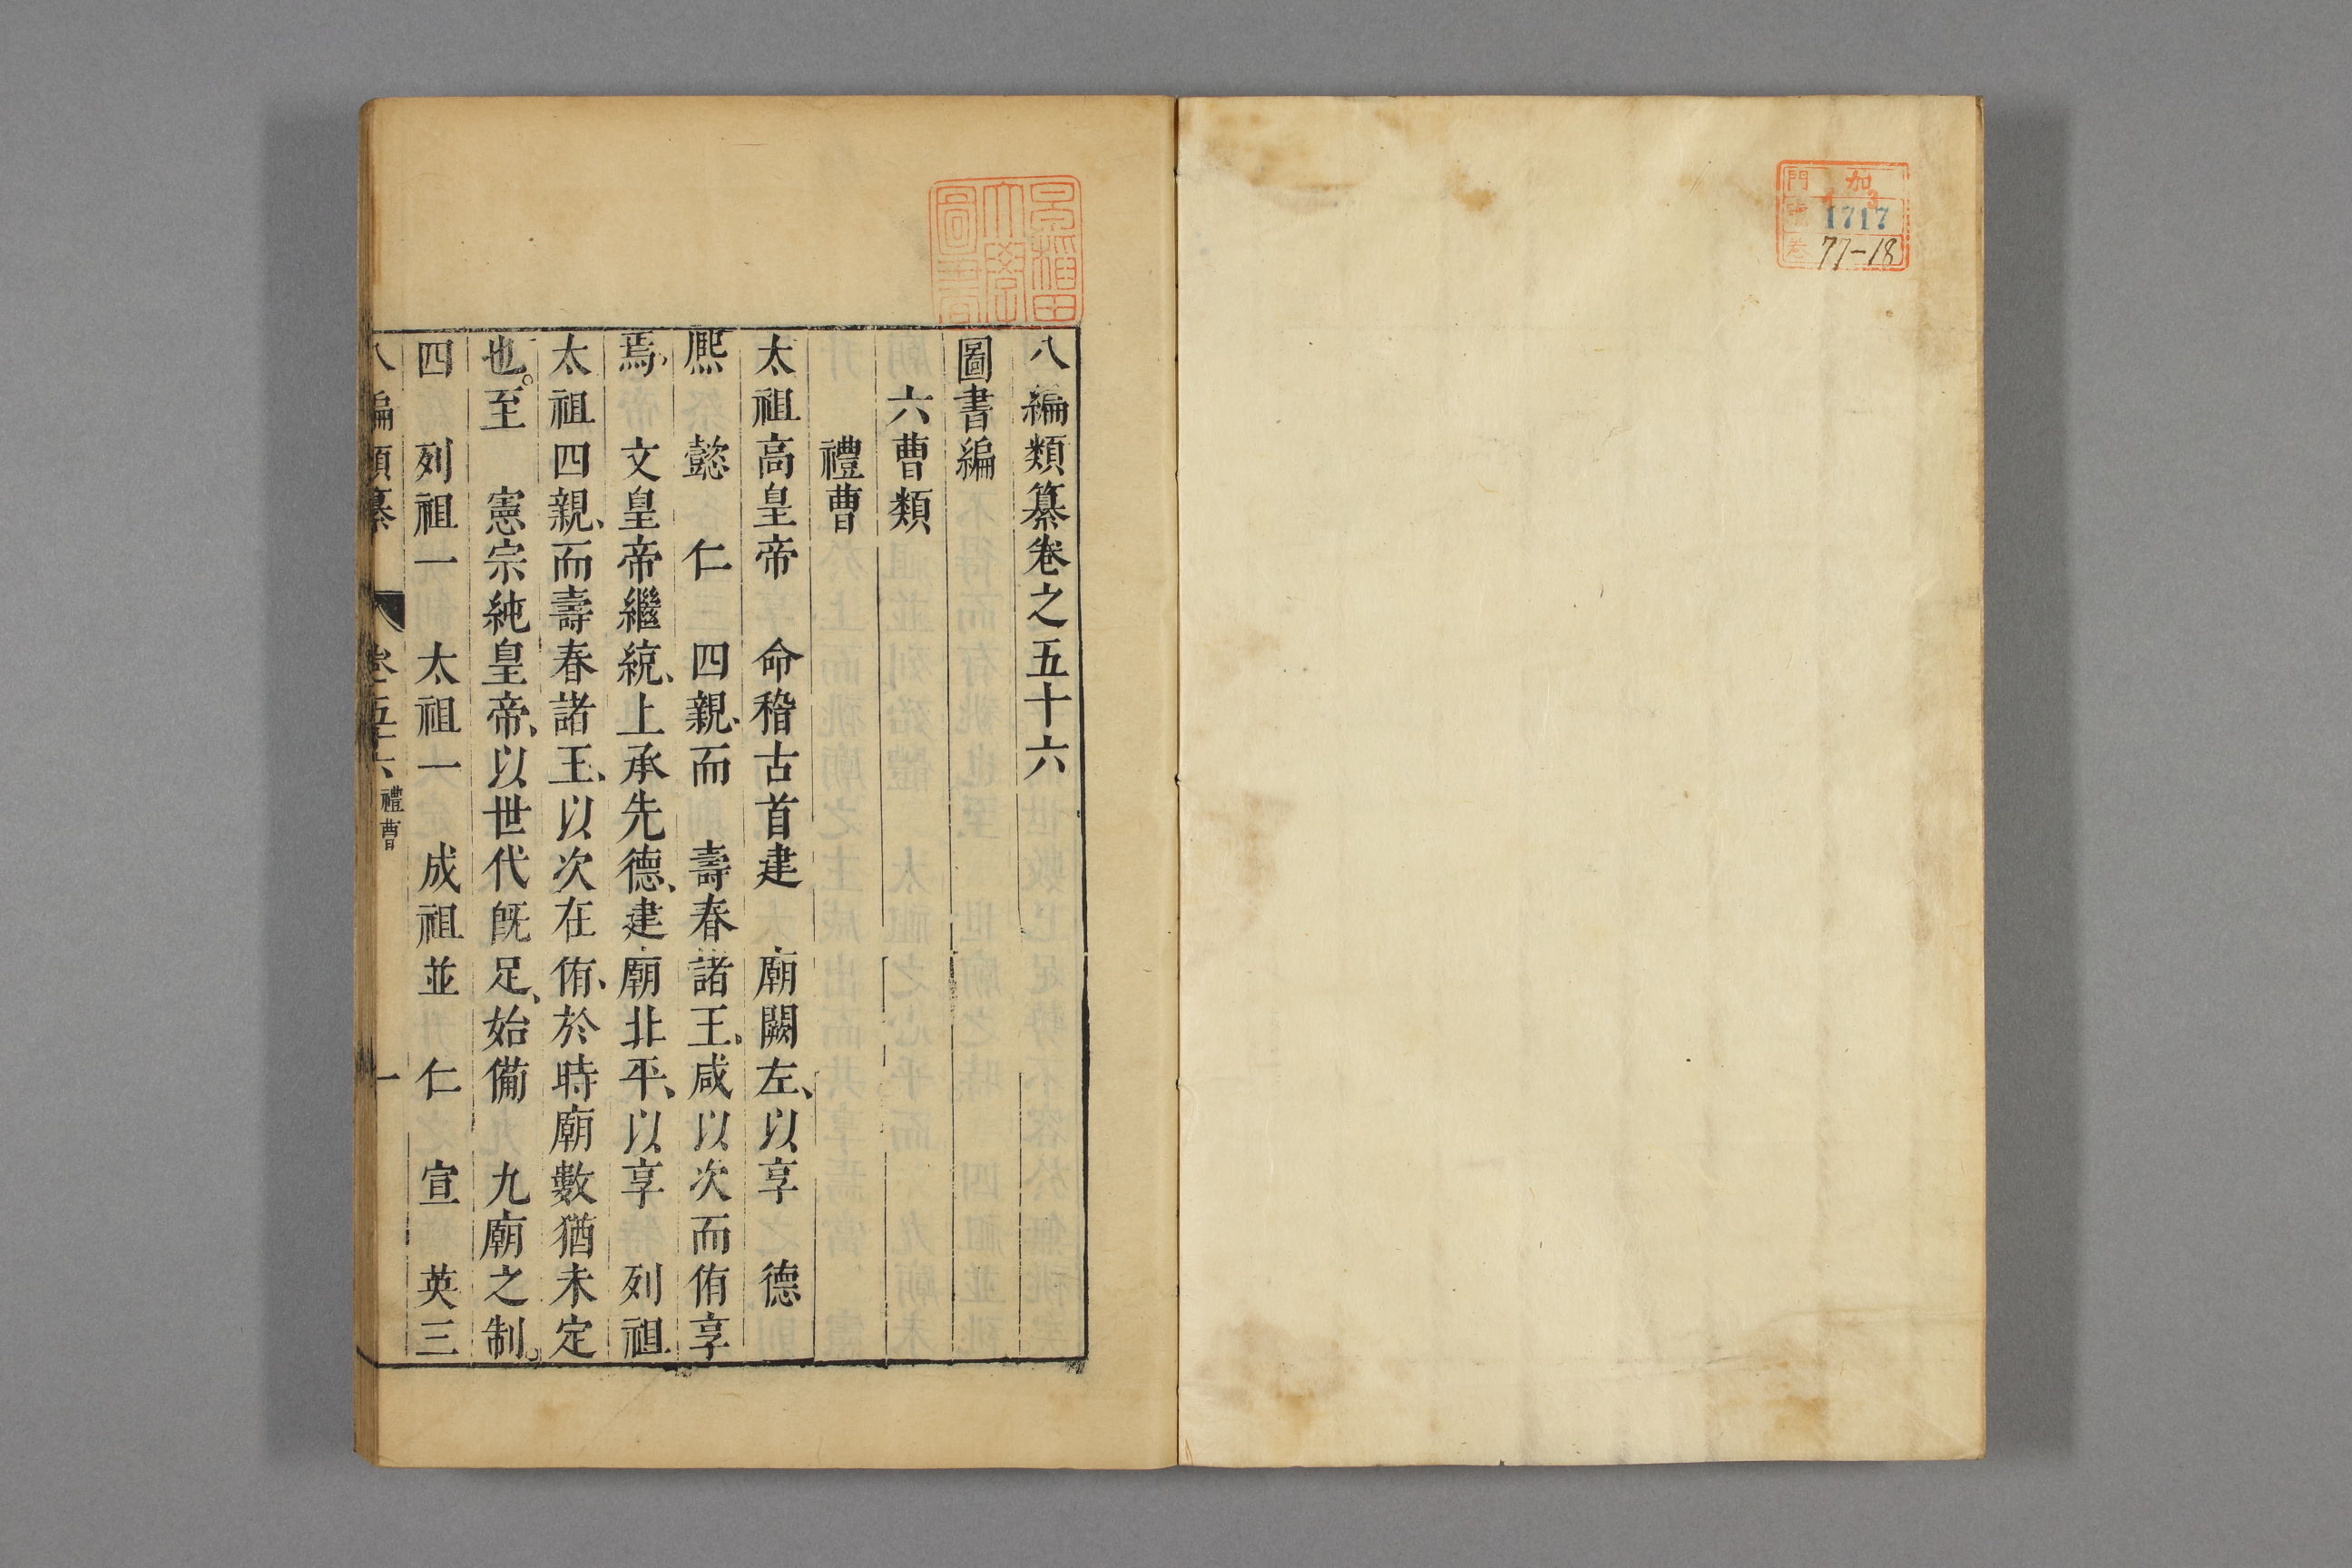 門 加
3
號 1717
卷 77-18
早稲田
大學
圖書
八編類纂卷之五十六
圖書編
六曹類
禮曹
太祖高皇帝 命稽古首建 廟闕左、以享 德
熈 懿 仁 四親、而 壽春諸王、咸以次而侑享
焉、 文皇帝繼統、上承先德、建廟北平、以享 列祖
太祖四親、而壽春諸王、以次在侑、於時廟數猶未定
也。至 憲宗純皇帝、以世代旣足、始備 九廟之制。
四 列祖一 太祖一 成祖並 仁 宣 英三
八編類纂 卷五十六 禮曹 一